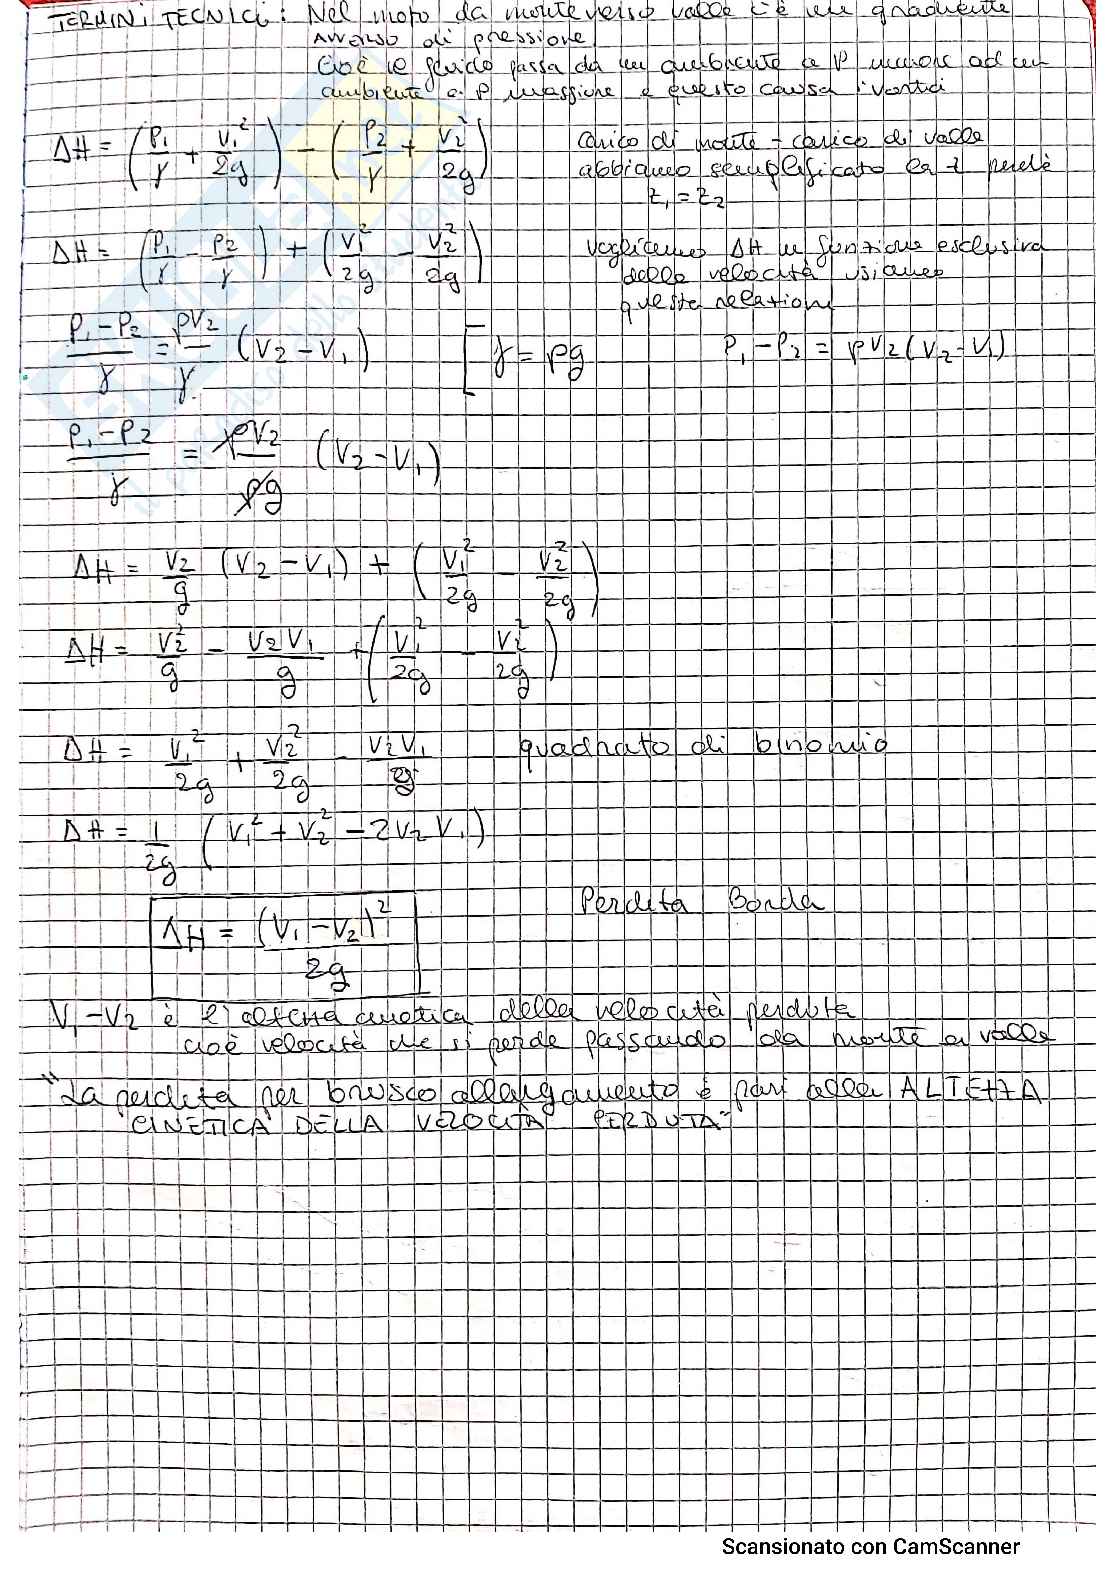 TERMINI TECNICI: Nel moto da monte verso valle c'è un gradiente
AVVERSO di pressione
Cioè il fluido passa da un ambiente a P minore ad un
ambiente a P maggiore e questo causa i vortici
ΔH = (P₁/γ + V₁²/2g) - (P₂/γ + V₂²/2g) carico di monte - carico di valle
abbiamo semplificato la z perché
z₁ = z₂
ΔH = (P₁/γ - P₂/γ) + (V₁²/2g - V₂²/2g) vogliamo ΔH in funzione esclusiva
delle velocità usiamo
queste relazioni
(P₁-P₂)/γ = ρV₂/γ (V₂-V₁) [γ = ρg P₁-P₂ = ρV₂(V₂-V₁)
(P₁-P₂)/γ = ρV₂/ρg (V₂-V₁)
ΔH = V₂/g (V₂-V₁) + (V₁²/2g - V₂²/2g)
ΔH = V₂²/g - V₂V₁/g + (V₁²/2g - V₂²/2g)
ΔH = V₁²/2g + V₂²/2g - V₂V₁/g quadrato di binomio
ΔH = 1/2g (V₁² + V₂² - 2V₂V₁)
Perdita Borda
ΔH = (V₁-V₂)²/2g
V₁-V₂ è l'altezza cinetica della velocità perduta
cioè velocità che si perde passando da monte a valle
"La perdita per brusco allargamento è pari alla ALTEZZA
CINETICA DELLA VELOCITÀ PERDUTA"
Scansionato con CamScanner